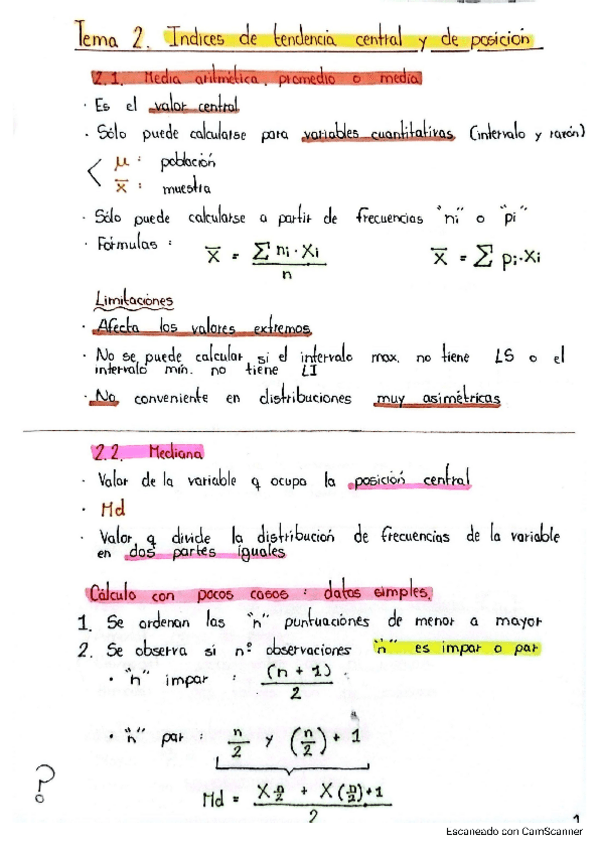 Tema 2. Indices de tendencia central y de posición
2.1. Media aritmética, promedio o media
· Es el valor central
· Sólo puede calcularse para variables cuantitativas (intervalo y razón)
< μ : población
x̅ : muestra
· Sólo puede calcularse a partir de frecuencias "ni" o "pi"
· Fórmulas : x̅ = Σ ni · Xi / n x̅ = Σ pi·Xi
Limitaciones
· Afecta los valores extremos
· No se puede calcular si el intervalo max. no tiene LS o el
intervalo mín. no tiene LI
· No conveniente en distribuciones muy asimétricas
2.2. Mediana
· Valor de la variable q ocupa la posición central
· Md
· Valor q divide la distribución de frecuencias de la variable
en dos partes iguales
Cálculo con pocos casos : datos simples.
1. Se ordenan las "n" puntuaciones de menor a mayor
2. Se observa si nº observaciones "n" es impar o par
· "n" impar : (n + 1) / 2
· "n" par : n/2 y (n/2) + 1
? Md = X n/2 + X (n/2)+1 / 2
1
Escaneado con CamScanner